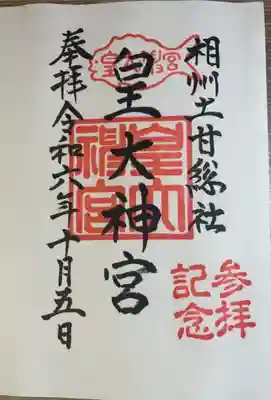 相州土甘総社
皇大神宮
皇大神宮
皇大神宮
参拝
記念
奉拝 令和六年十月五日